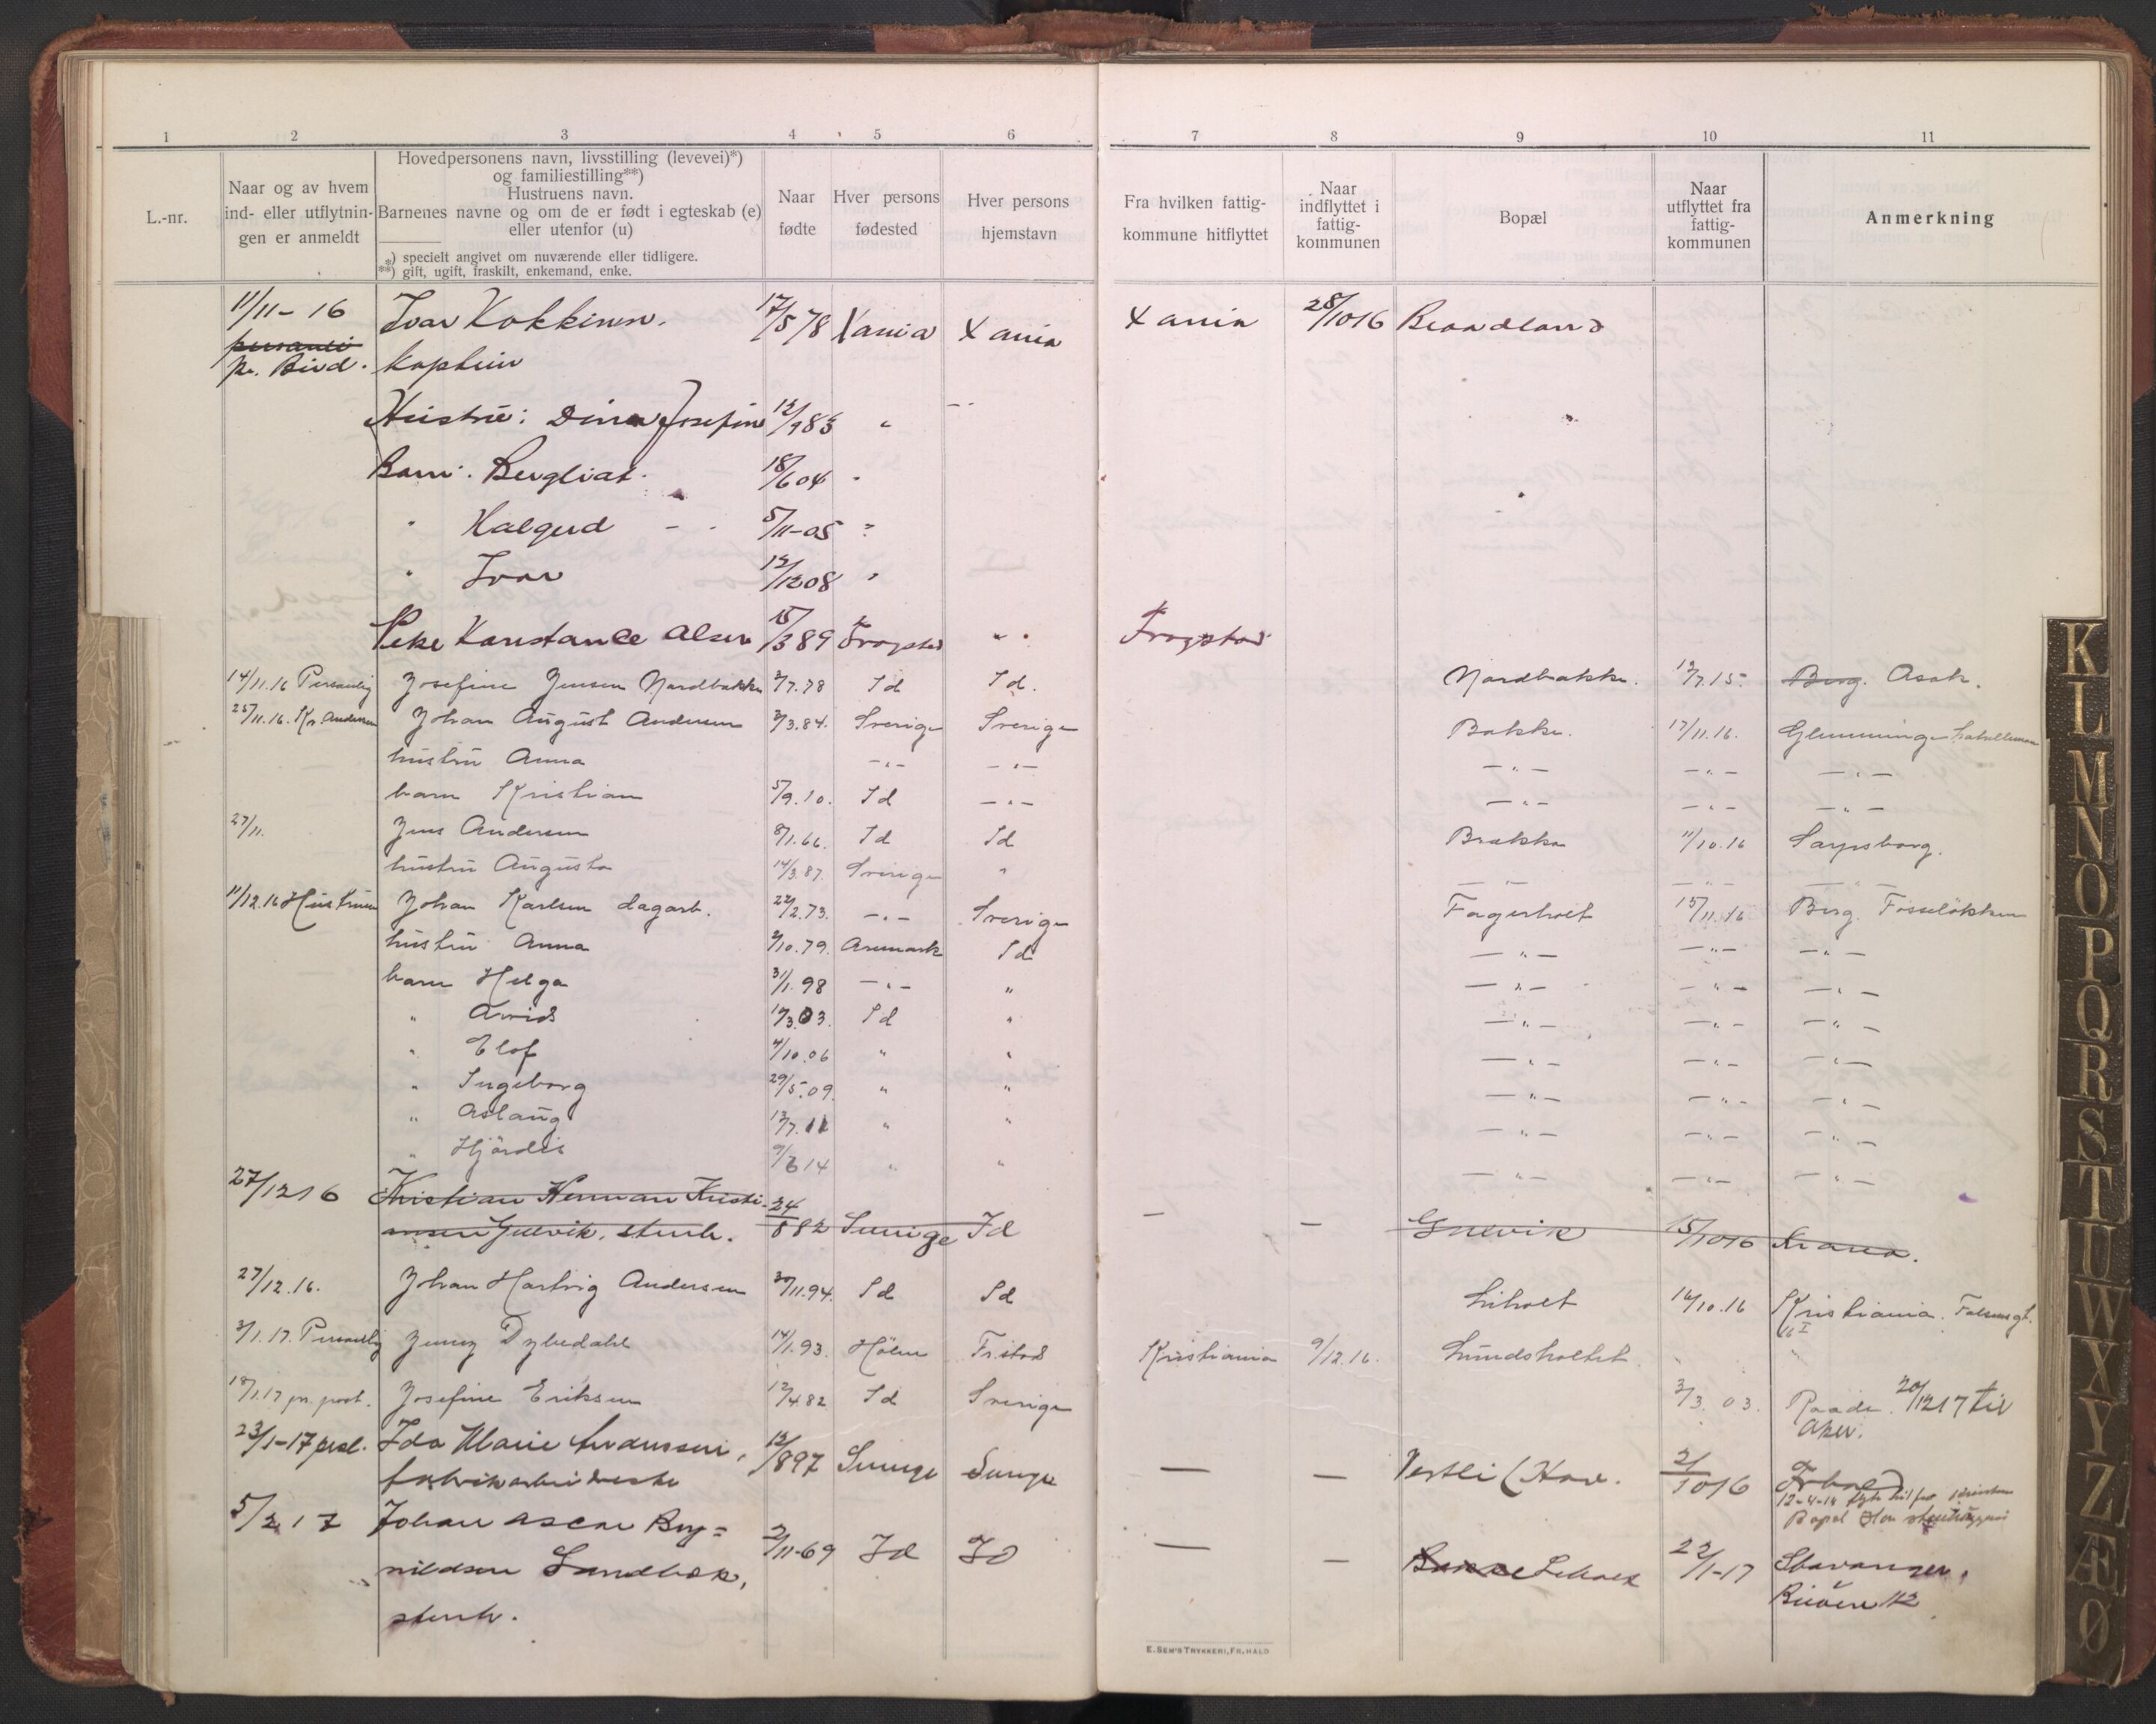 1 2 3 4 5 6 7 8 9 10 11
L.-nr.
Naar og av hvem
ind- eller utflytnin-
gen er anmeldt
Hovedpersonens navn, livsstilling (levevei)*)
og familiestilling**)
Hustruens navn.
Barnenes navne og om de er født i egteskab (e)
eller utenfor (u)
*) specielt angivet om nuværende eller tidligere.
**) gift, ugift, fraskilt, enkemand, enke.
Naar
fødte
Hver persons
fødested
Hver persons
hjemstavn
Fra hvilken fattig-
kommune hitflyttet
Naar
indflyttet i
fattig-
kommunen
Bopæl
Naar
utflyttet fra
fattig-
kommunen
Anmerkning
11/11-16 Ivar Kokkinn. 17/5 78 Xania Xania Xania 28/10 16
pr. Bud. kaptein
Hustru: Dina Josefine 12/9 83 "
Barn: Bergliot. 18/6 04 "
" Halgerd - - 5/11-05 "
" Ivar 12/12 08 "
Konstance Olsen 15/3 89 Trøgstad " Trøgstad
14/11.16 Personlig Josefine Jensen Nordbakke 2/7.78 Id Id. Nordbakke. 12/7.15. Berg. Asak.
25/11.16. Kr. Andersen Johan August Andersen 3/3.84. Sverige Sverige Bakke. 17/11.16. Glemminge
hustru Anna -"- -"- -"- -"- -"-
barn Kristian 5/9.10. Id -"- -"- -"- -"-
27/11. Jens Andersen 8/1.66. Id Id Brække 11/10.16 Sarpsborg.
hustru Augusta 14/3.87. Sverige " -"- -"- -"-
11/12.16 Hustruen Johan Karlsen dagarb. 22/2.73. -"- Sverige Fagerholt 15/11.16 Berg. Fosseløkken
hustru Anna 2/10.79. Aremark Id -"- -"- -"-
barn Helga 31/1.98 -"- " -"- -"- -"-
" Arvid 17/3.03. Id " -"- -"- -"-
" Elof 4/10.06 " " -"- -"- -"-
" Ingeborg 29/5.09. " " -"- -"- -"-
" Aslaug 13/7.11 " " -"- -"- -"-
" Hjördis 9/6 14 " " -"- -"- -"-
27/12 16 Kristian Herman Kristi-
ansen Gulvik, stenh. 24/8 82 Sverige Id — — Gulvik 15/10 16
27/12.16. Johan Hartvig Andersen 30/11.94. Id Id Liholt 16/10.16 Kristiania. Falsensgt.
16 I
3/1.17. Personlig Jenny Dybedahl 14/1.93. Fr.stad Kristiania 9/12.16. Lundsholtet
18/1.17 pr. post. Josefine Eriksen 12/4 82 Id Sverige 3/3.03. Raade. 20/12 17 til
Aker.
23/1-17 Ida Marie Andersen, 12/8 97 Sverige Sverige — — Vestli 21/10 16 Frhald
fabrikarbeiderske
5/2 17 Johan Oscar Bry=
nildsen Sandbæk, 2/11-69 Id Id — — Liholt 22/1-17 Stavanger.
stenh.
E. SEM'S TRYKKERI, FR.HALD
K
L
M
N
O
P
Q
R
S
T
U
W
X
Y
Z
Æ
Ø